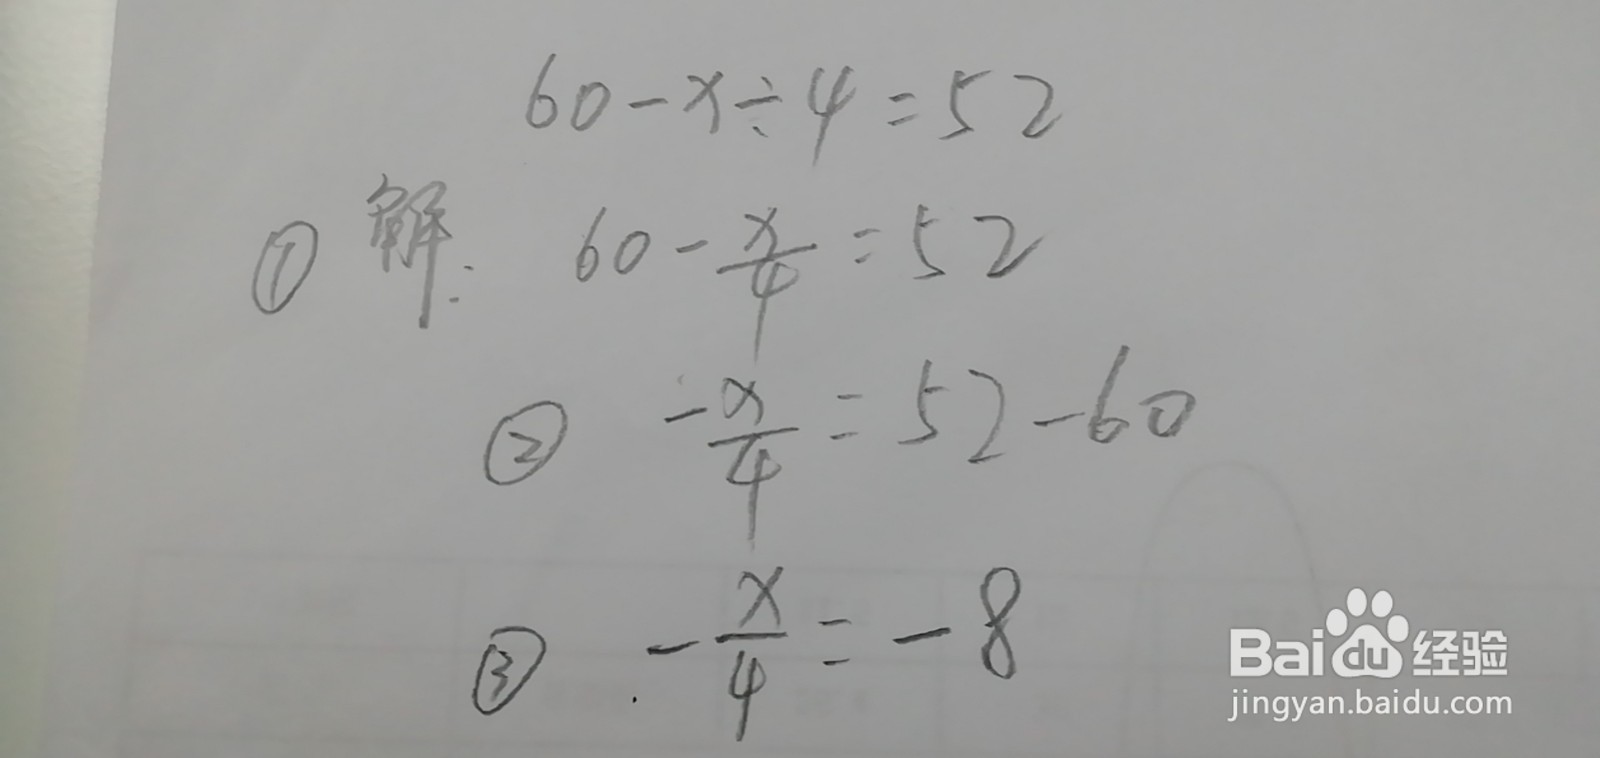 60-x÷4=52
① 解: 60-x/4=52
② -x/4=52-60
③ -x/4=-8
Baidu经验
jingyan.baidu.com